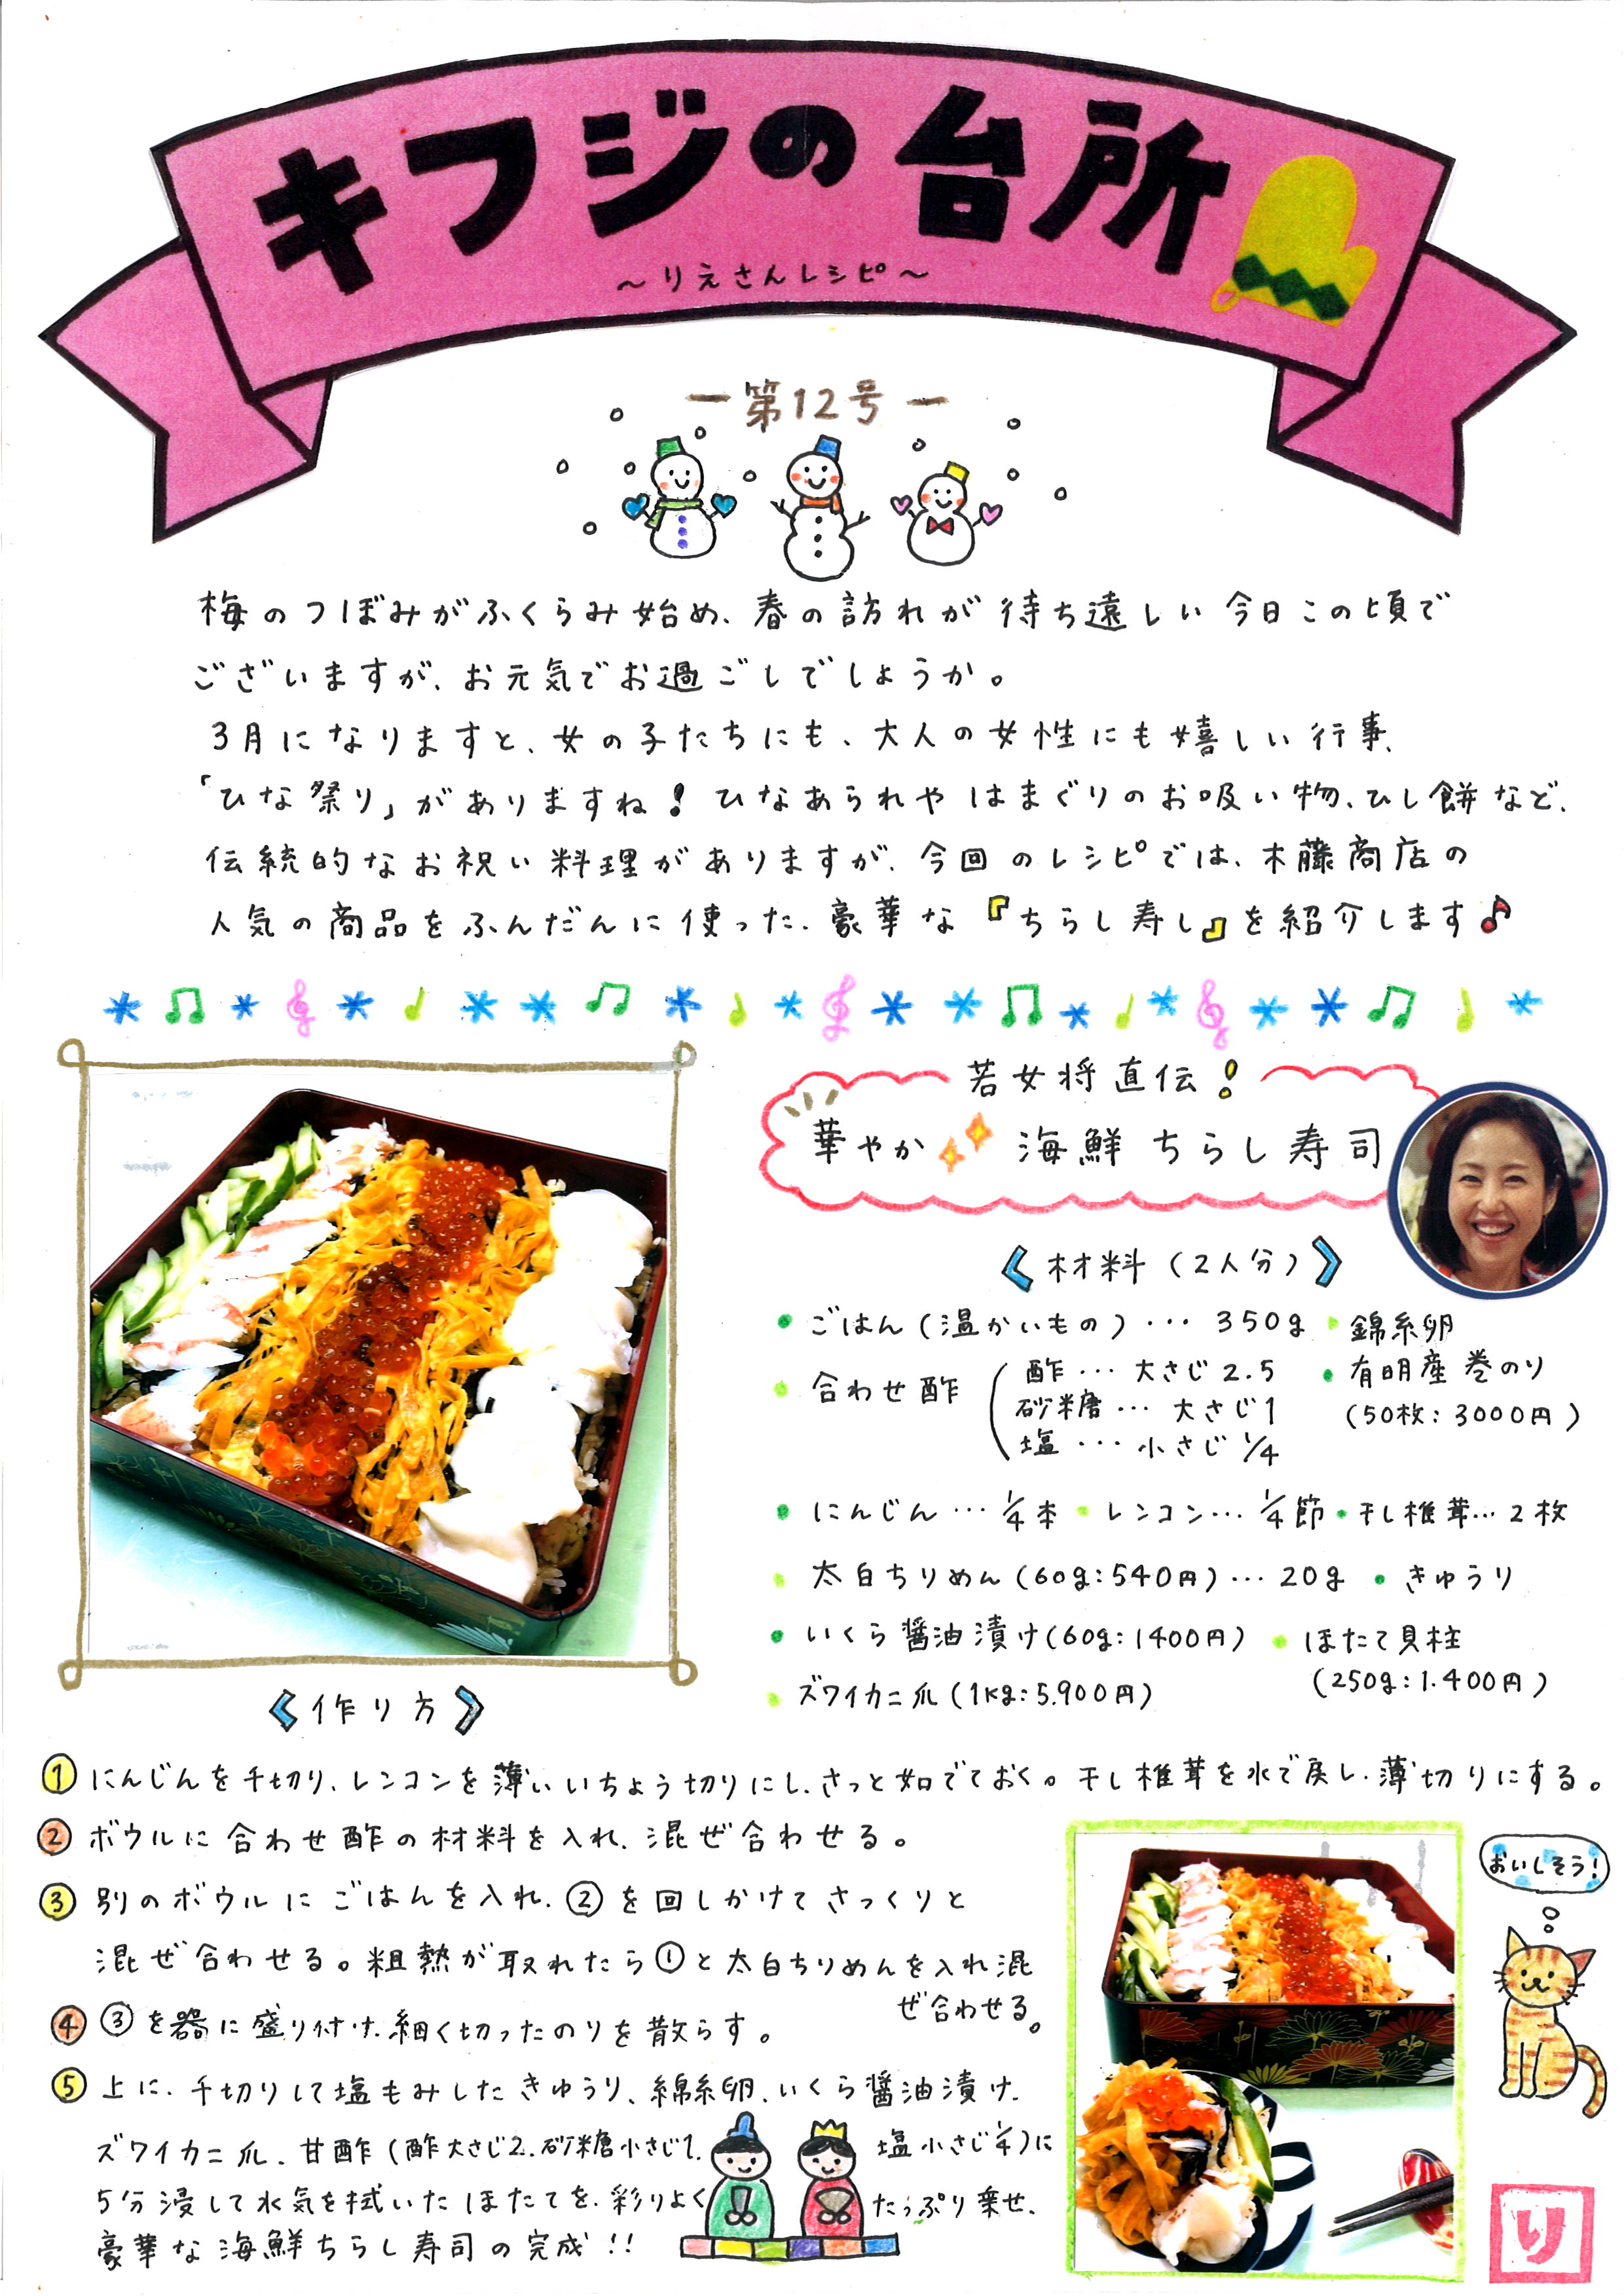 キフジの台所
～りえさんレシピ～
ー第12号ー
梅のつぼみがふくらみ始め、春の訪れが待ち遠しい今日この頃で
ございますが、お元気でお過ごしでしょうか。
3月になりますと、女の子たちにも、大人の女性にも嬉しい行事、
「ひな祭り」がありますね！ひなあられやはまぐりのお吸い物、ひし餅など、
伝統的なお祝い料理がありますが、今回のレシピでは、木藤商店の
人気の商品をふんだんに使った、豪華な『ちらし寿し』を紹介します♪
若女将直伝！
華やか 海鮮ちらし寿司
〈材料(2人分)〉
・ごはん(温かいもの)…350g ・錦糸卵
・合わせ酢(酢…大さじ2.5
砂糖…大さじ1
塩…小さじ1/4
・有明産巻のり
(50枚:3000円)
・にんじん…1/4本 ・レンコン…1/4節 ・干し椎茸…2枚
・太白ちりめん(60g:540円)…20g ・きゅうり
・いくら醤油漬け(60g:1400円) ・ほたて貝柱
(250g:1.400円)
・ズワイカニ爪(1kg:5.900円)
〈作り方〉
① にんじんを千切り、レンコンを薄いいちょう切りにし、さっと茹でておく。干し椎茸を水で戻し、薄切りにする。
② ボウルに合わせ酢の材料を入れ、混ぜ合わせる。
③ 別のボウルにごはんを入れ、②を回しかけてさっくりと
混ぜ合わせる。粗熱が取れたら①と太白ちりめんを入れ混
ぜ合わせる。
④ ③を器に盛り付け、細く切ったのりを散らす。
⑤ 上に、千切りして塩もみしたきゅうり、錦糸卵、いくら醤油漬け、
ズワイカニ爪、甘酢(酢大さじ2、砂糖小さじ1、塩小さじ1/4)に
5分浸して水気を拭いたほたてを、彩りよくたっぷり乗せ、
豪華な海鮮ちらし寿司の完成!!
おいしそう!
り